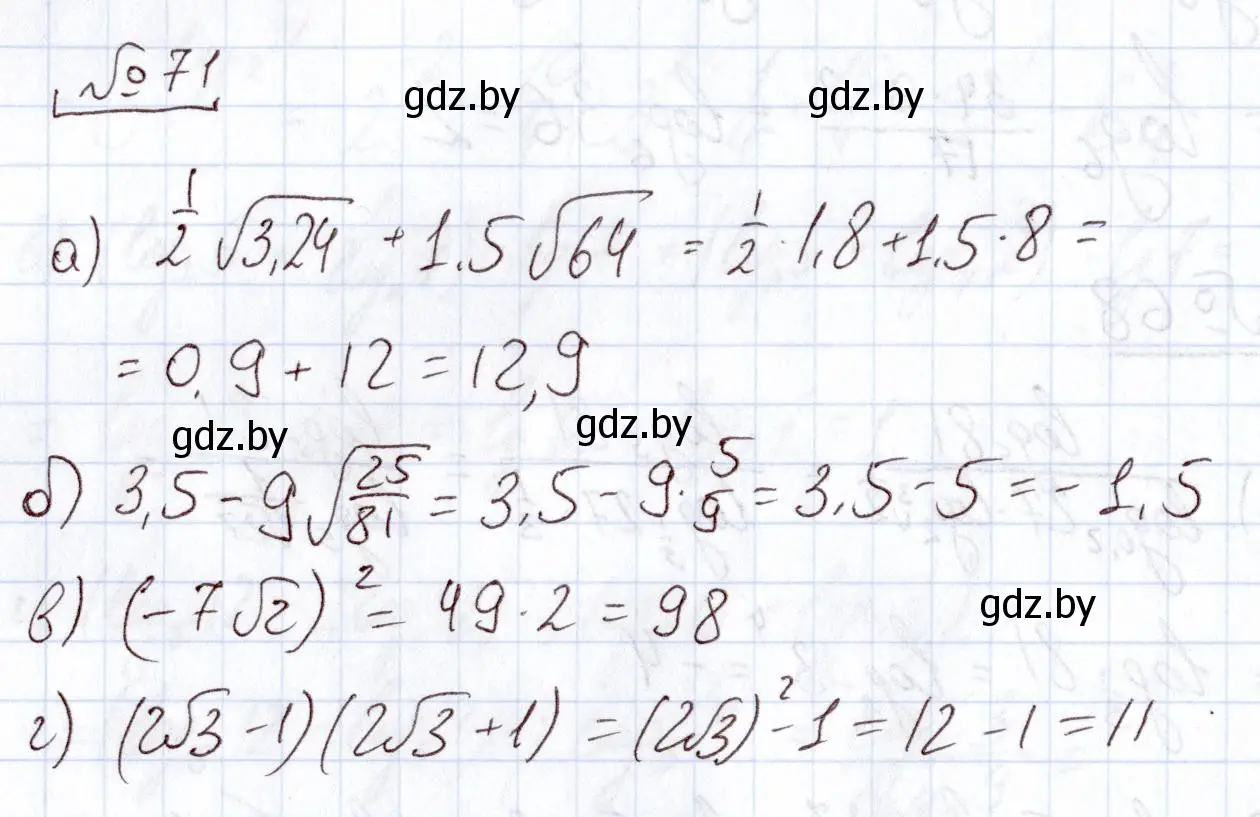 № 71
gdz.by gdz.by
а) 1/2 √3,24 + 1,5 √64 = 1/2 · 1,8 + 1,5 · 8 =
= 0,9 + 12 = 12,9
gdz.by gdz.by
б) 3,5 - 9 √25/81 = 3,5 - 9 · 5/9 = 3,5 - 5 = - 1,5
в) (- 7 √2)² = 49 · 2 = 98
gdz.by
г) (2√3 - 1) (2√3 + 1) = (2√3)² - 1 = 12 - 1 = 11